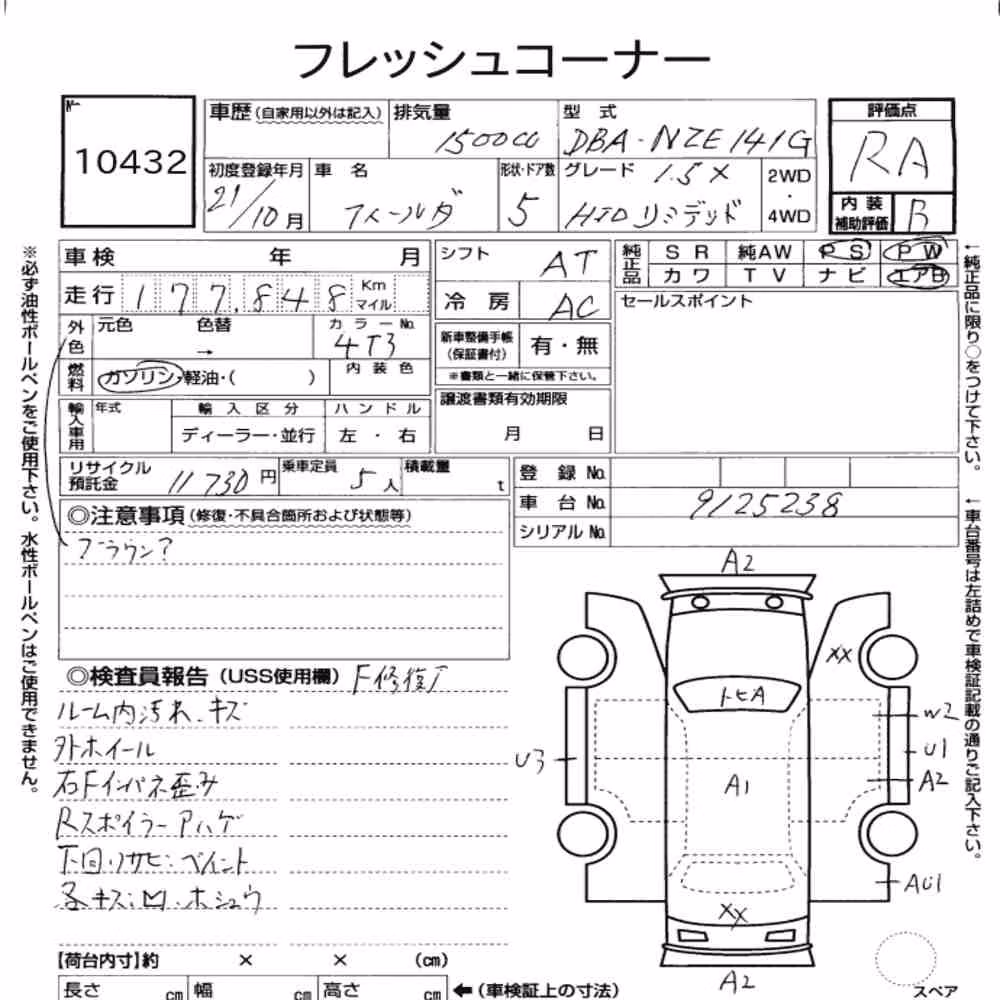 フレッシュコーナー
№ 10432
車歴 (自家用以外は記入) 排気量 1500cc 型式 DBA-NZE141G
評価点 RA
初度登録年月 21/10月 車名 フィールダ 形状・ドア数 5 グレード 1.5X HIDリミテッド 2WD・4WD
内装補助評価 B
車検 年 月
シフト AT
純正品 SR 純AW PS PW
カワ TV ナビ エアB
走行 177,848 Km マイル
冷房 AC
セールスポイント
外色 元色 色替 → カラーNo. 4T3
新車整備手帳(保証書付) 有・無
※書類と一緒に保管下さい。
燃料 ガソリン・軽油・( ) 内装色
譲渡書類有効期限 月 日
輸入車用 年式 輸入区分 ハンドル
ディーラー・並行 左・右
リサイクル預託金 11730円 乗車定員 5人 積載量 t
登録No.
車台No. 9125238
シリアルNo.
◎注意事項 (修復・不具合箇所および状態等)
ブラウン?
◎検査員報告 (USS使用欄) F修復
ルーム内汚れ、キズ
外ホイール
右Fインパネ歪み
Rスポイラーアハゲ
下回りサビ・ペイント
各キズ・凹・ホシュウ
A2
XX
トビA
W2
U1
U3
A1
A2
AU1
XX
A2
スペア
【荷台内寸】約 × × (cm)
長さ cm 幅 cm 高さ cm ←(車検証上の寸法)
※必ず油性ボールペンをご使用下さい。水性ボールペンはご使用できません。
←純正品に限り○をつけて下さい。
←車台番号は左詰めで車検証記載の通りご記入下さい。